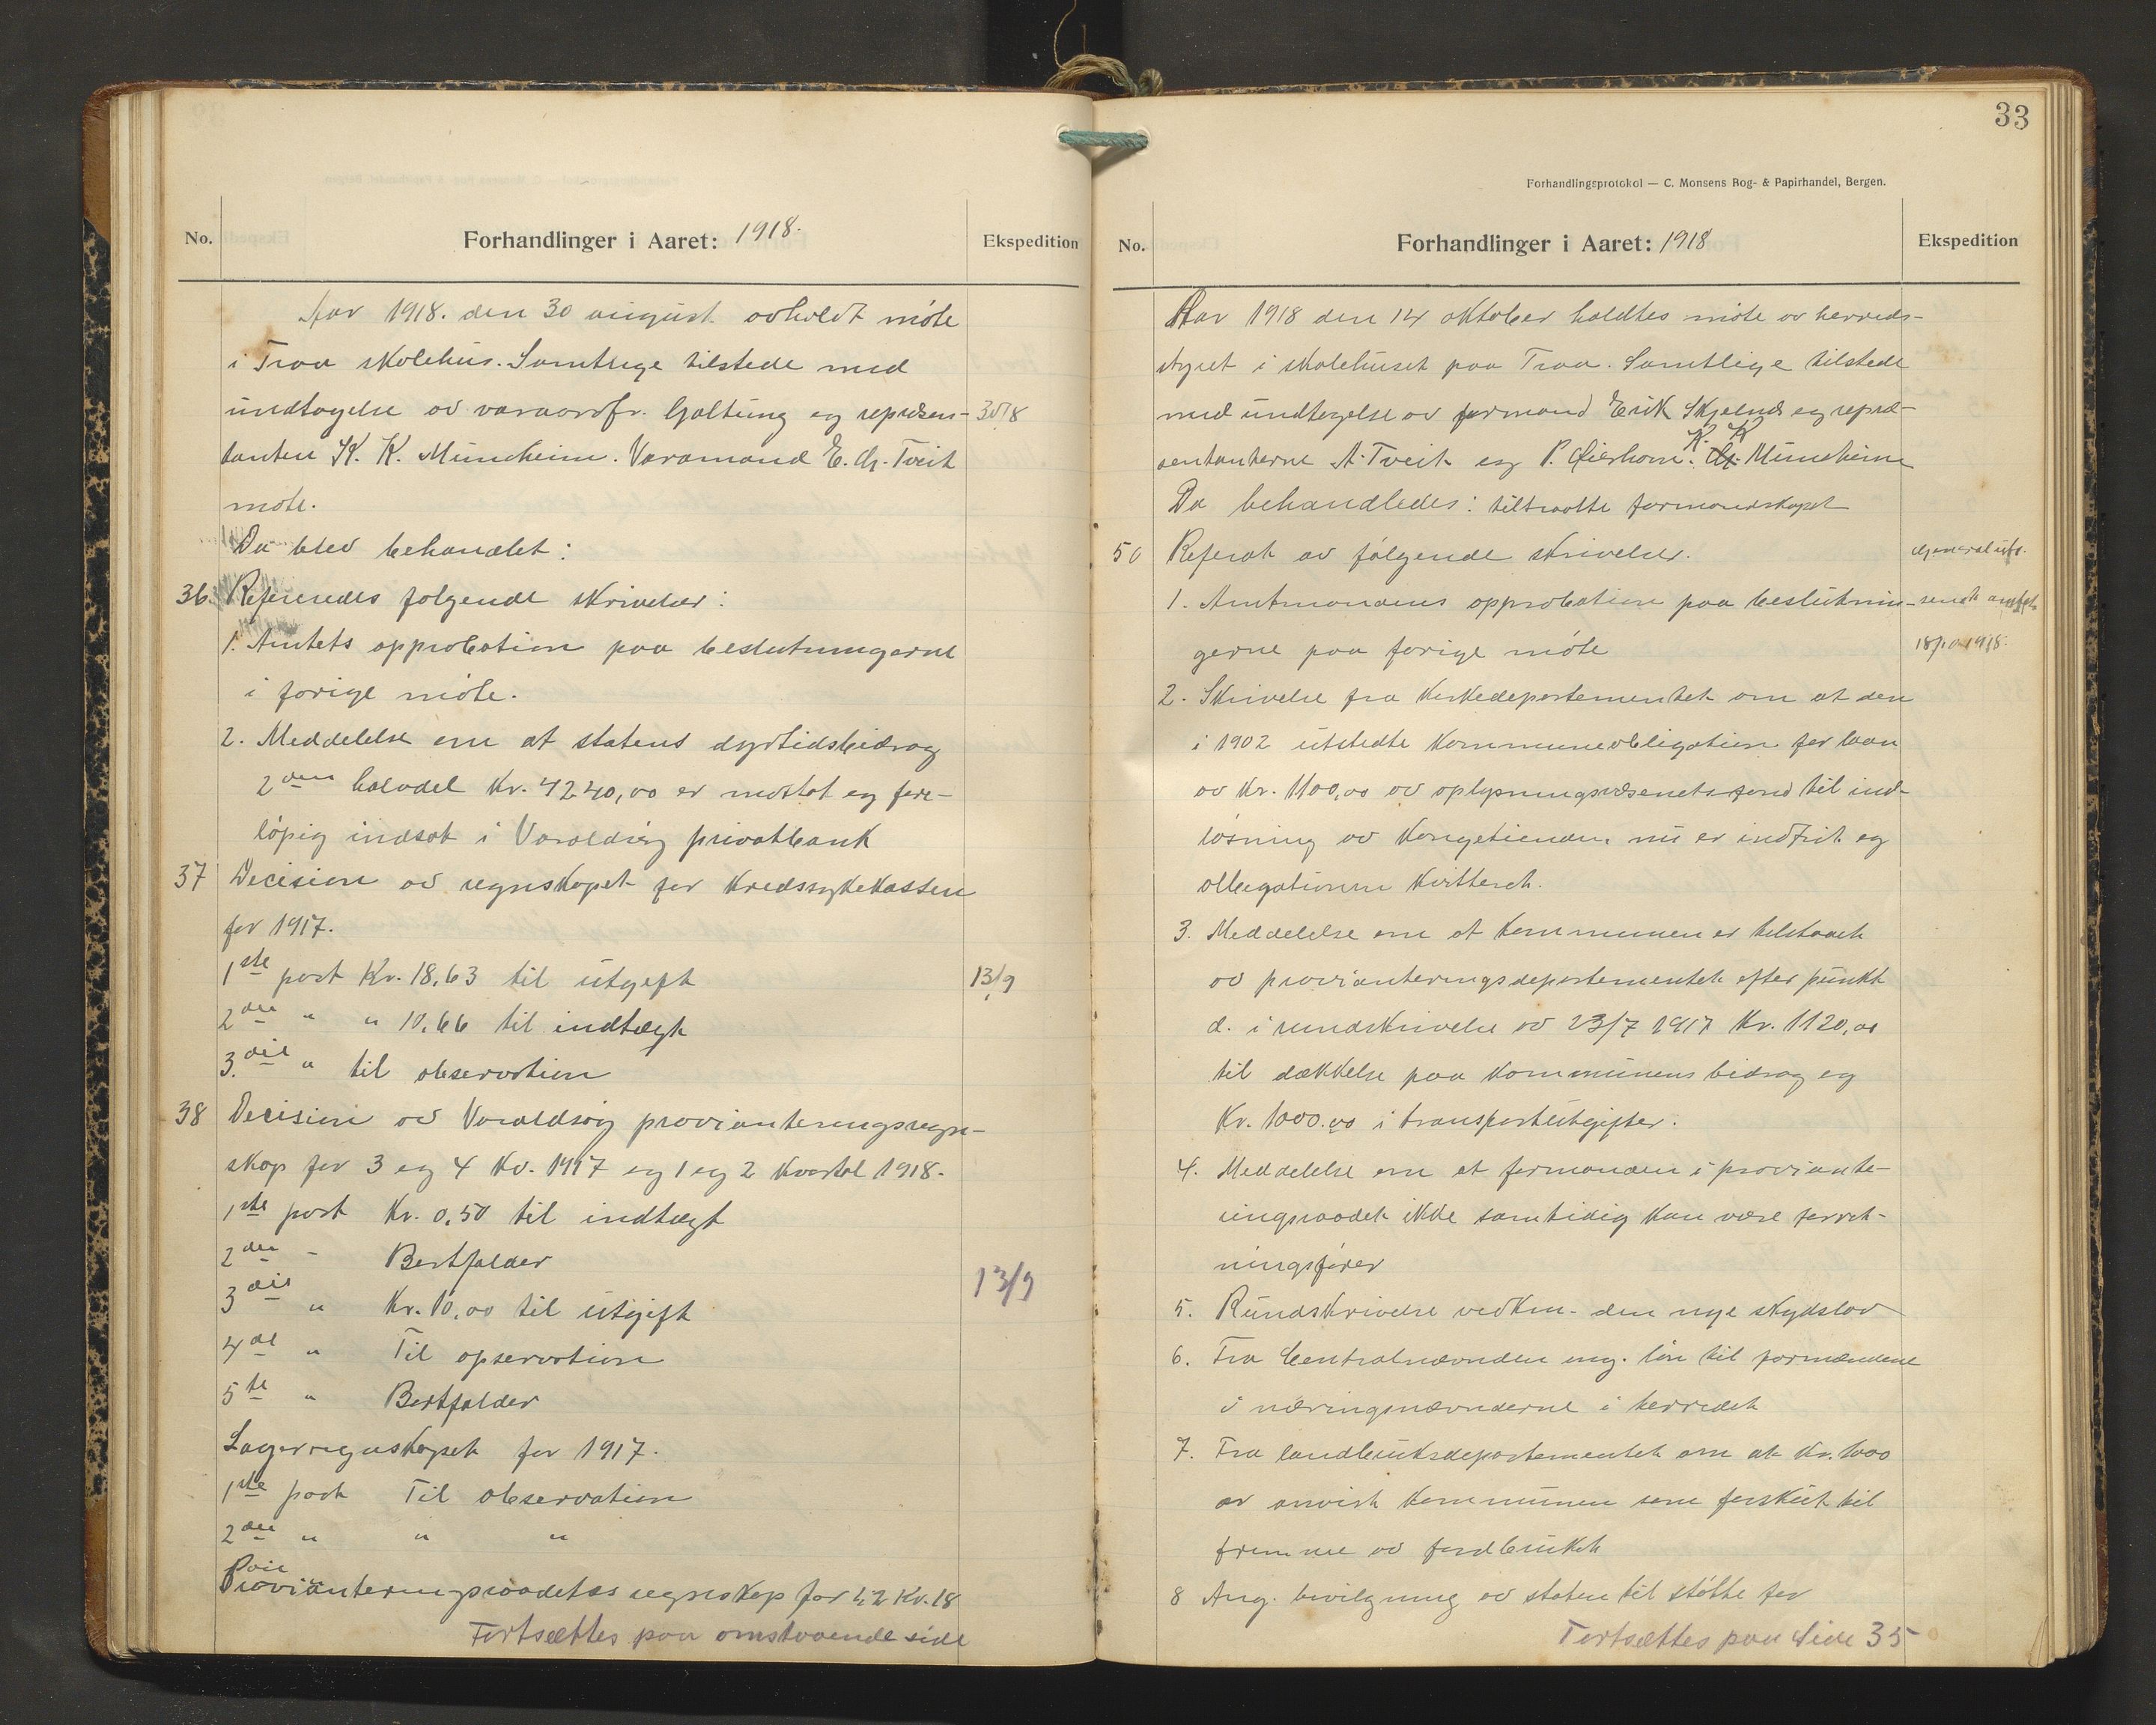 No.
Forhandlinger i Aaret: 1918.
Ekspedition
Aar 1918. den 30 august avholdt möte
i Traa skolehus. Samtlige tilstede med
undtagelse av varaordf. Galtung og represen-
tanten K. K. Mundheim. Varamand E. Chr. Tveit
möte.
Da blev behandlet:
36. Refereredes følgende skrivelser:
1. Amtets approbation paa beslutningerne
i forige möte.
2. Meddelelse om at statens dyrtidsbidrag
2den halvdel Kr. 4240,00 er mottat og fore-
löpig indsat i Varaldsöy privatbank
37 Decision av regnskapet for Kredssykekassen
for 1917.
1ste post Kr. 18,63 til utgift 13/9
2den " " 10,66 til indtægt
3.die " til observation
38 Decision av Varaldsöy provianteringsregn-
skap for 3 og 4 Kv. 1917 og 1 og 2 Kvartal 1918.
1ste post Kr. 0,50 til indtægt
2den - Bortfalder
3die " Kr. 10,00 til utgift 13/9
4de " Til opservation
5te " Bortfalder
Lagerregnskapet for 1917.
1ste post Til observation
2den " " "
Provianteringsraadets regnskap for 1, 2 Kv. 18
Fortsættes paa omstaaende side
33
Forhandlingsprotokol — C. Monsens Bog- & Papirhandel, Bergen.
No.
Forhandlinger i Aaret: 1918
Ekspedition
Aar 1918 den 14 oktober holdtes möte av herreds-
styret i skolehuset paa Traa. Samtlige tilstede
med undtagelse av formand Erik Skjelnes og repræ-
sentanterne A. Tveit og P. K. K. Mundheim
Da behandledes: tiltraatte formandskapet
50 Referat av følgende skrivelser.
1. Amtmandens approbation paa beslutnin- sendt amtet
gerne paa forige möte 18/10 1918.
2. Skrivelse fra Kirkedepartementet om at den
i 1902 utstedte Kommuneobligation for laan
av Kr. 1100,00 av oplysningsvæsenets fond til ind-
løsning av Kongetienden nu er indfrit og
obligationen Kvittert.
3. Meddelelse om at Kommunen er tilstaaet
av provianteringsdepartementet efter punkt
d. i rundskrivelse av 23/7 1917 Kr. 1120,00
til dækkelse paa Kommunens bidrag og
Kr. 1000.00 i transportutgifter.
4. Meddelelse om at formanden i proviante-
ringsraadet ikke samtidig kan være forret-
ningsfører
5. Rundskrivelse vedkm. den nye skydslov
6. Fra Centralnævnden ang. lön til formændene
i næringsnævnderne i herredet
7. Fra landbruksdepartementet om at Kr. 1000
er anvist kommunen som forskut til
fremme av jordbruket
8 Ang. bevilgning av staten til støtte for
Fortsættes paa Side 35